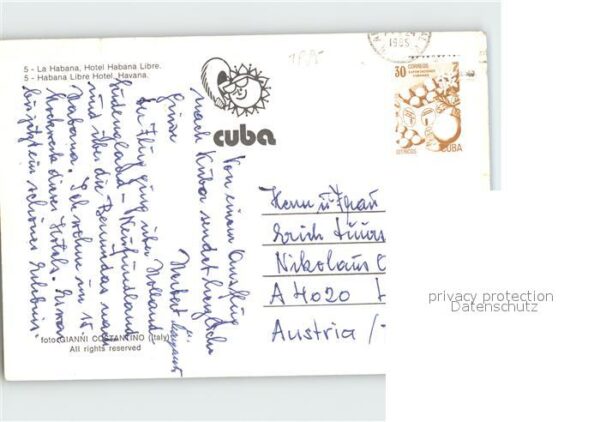 5 - La Habana, Hotel Habana Libre.
5 - Habana Libre Hotel, Havana.
cuba
1985
30 CORREOS
EXPORTACIONES
CUBANAS
CITRICOS CUBA
Von einem Ausflug
nach Kuba sendet herzliche
Grüße
Herbert
Der Flug ging über Holland
Südengland - Neufundland
und über die Bermudas nach
Habana. Ich wohne im 15.
Stockwerk dieses Hotels.
schönes Erlebnis.
Herrn u. Frau
Erich
Nikolaus
A 4020
Austria /
foto GIANNI COSTANTINO (Italy)
All rights reserved
privacy protection
Datenschutz